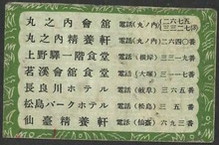 丸之内會舘 電話(丸ノ内) 二六七五 三三二七
丸之内精養軒 電話(丸ノ内)二六四〇番
上野驛一階食堂 電話(根岸)三三一番
茗溪會舘食堂 電話(大塚)三一一番
長良川ホテル 電話(岐阜)三六五番
松島パークホテル 電話(松島)三五番
仙臺精養軒 電話(仙臺)六九三番